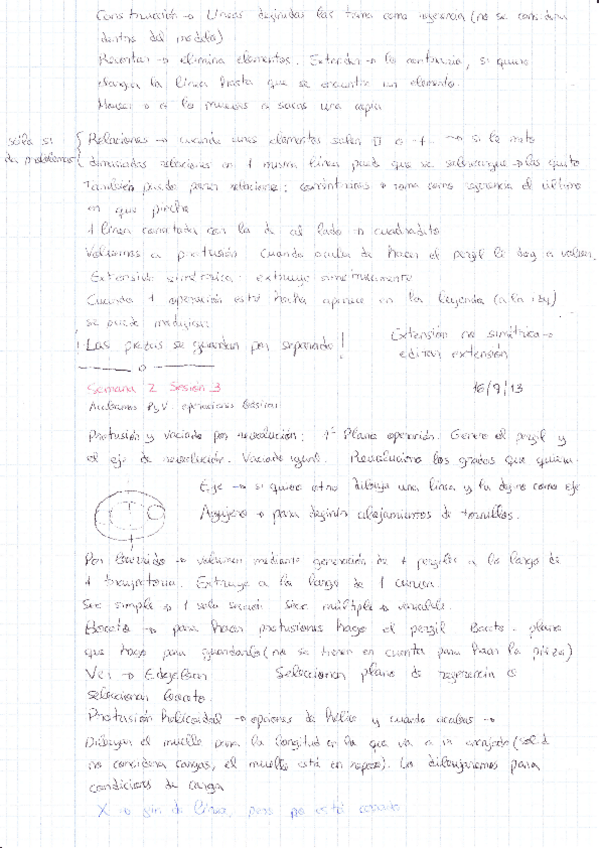 Construcción → Líneas definidas las toma como referencia (no se considera
dentro del modelo)
Recortar → elimina elementos. Extender → lo contrario, si quiero
alargar la línea hasta que se encuentre un elemento.
Mover → o lo mueves o sacas una copia
sólo si da problemas { Relaciones → cuando unes elementos salen □ o + → si le meto
demasiadas relaciones en 1 misma línea puede que se sobrecargue → las quito
También puedo poner relaciones: concéntricos → toma como referencia el último
en que pinche
1 línea conectada con la de al lado → cuadradito
Volvemos a protusión. Cuando acaba de hacer el perfil le doy a volver.
Extensión simétrica: extruye simétricamente
Cuando 1 operación está hecha aparece en la leyenda (a la izq)
se puede modificar.
¡Las piezas se guardan por separado!
Extensión no simétrica →
editar extensión
Semana 2 Sesión 3
16/9/13
operaciones básicas
Protusión y vaciado por revolución: 1º Plano operación. Genero el perfil y
el eje de revolución. Vaciado igual. Revoluciono los grados que quiera.
Eje → si quiero otro dibujo una línea y la defino como eje
Agujero → para definir alojamientos de tornillos.
Por Barrido → volumen mediante generación de 1 perfil a lo largo de
1 trayectoria. Extruye a lo largo de 1 curva.
simple → 1 sola sección. múltiple → variable.
Boceto → para hacer protusiones hago el perfil. Boceto: plano
que hago para guardarlo (no se tienen en cuenta para hacer la pieza)
Ver → Seleccionar plano de referencia o
seleccionar boceto.
Protusión helicoidal → opciones de hélice y cuando acabas →
Dibujar el muelle para la longitud en la que va a ir (solid
no considera cargas, el muelle está en reposo). Lo dibujaremos para
condiciones de carga
X → fin de línea, pero no está cerrado